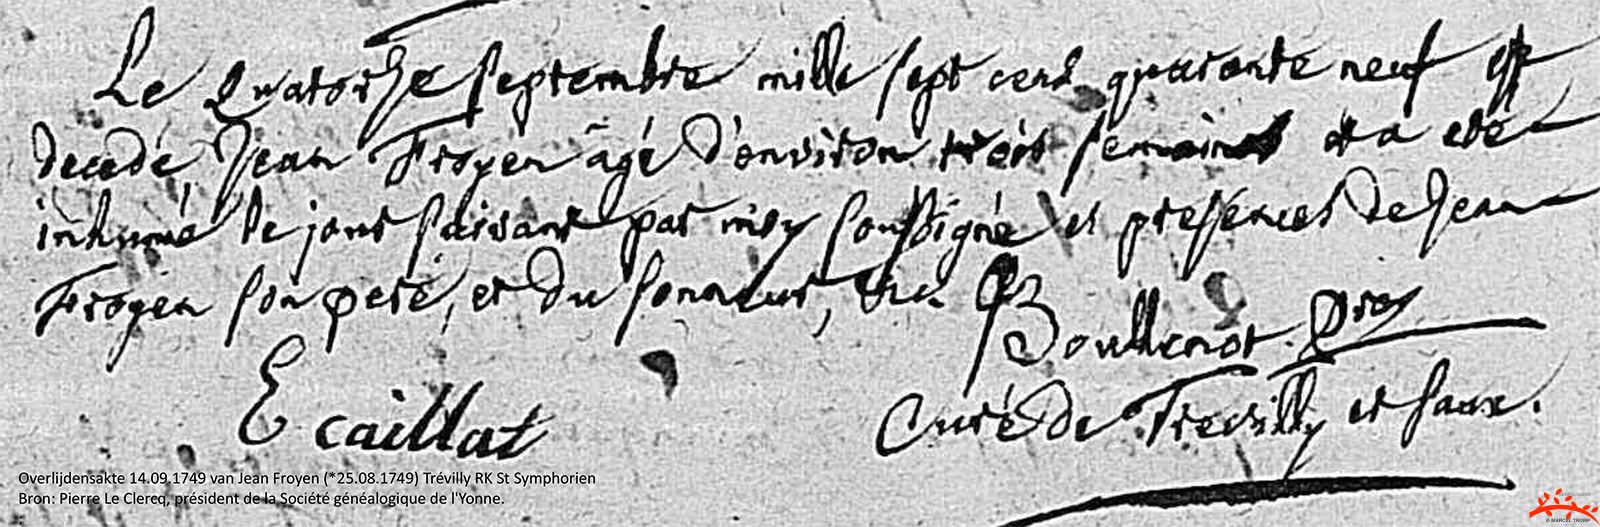 Le Quatorhze septembre mille sept cent quarante neuf est
decedé Jean Froyen âgé d'environ trois semaines et a eté
inhumé le jour suivant par moy soussigné et presences de Jean
Froyen son pere, et du sonneur,
Boullenot. Pre
E caillat
Curé de Trevilly et Saux.
Overlijdensakte 14.09.1749 van Jean Froyen (*25.08.1749) Trévilly RK St Symphorien
Bron: Pierre Le Clercq, président de la Société généalogique de l'Yonne.
© MARCEL TROMP